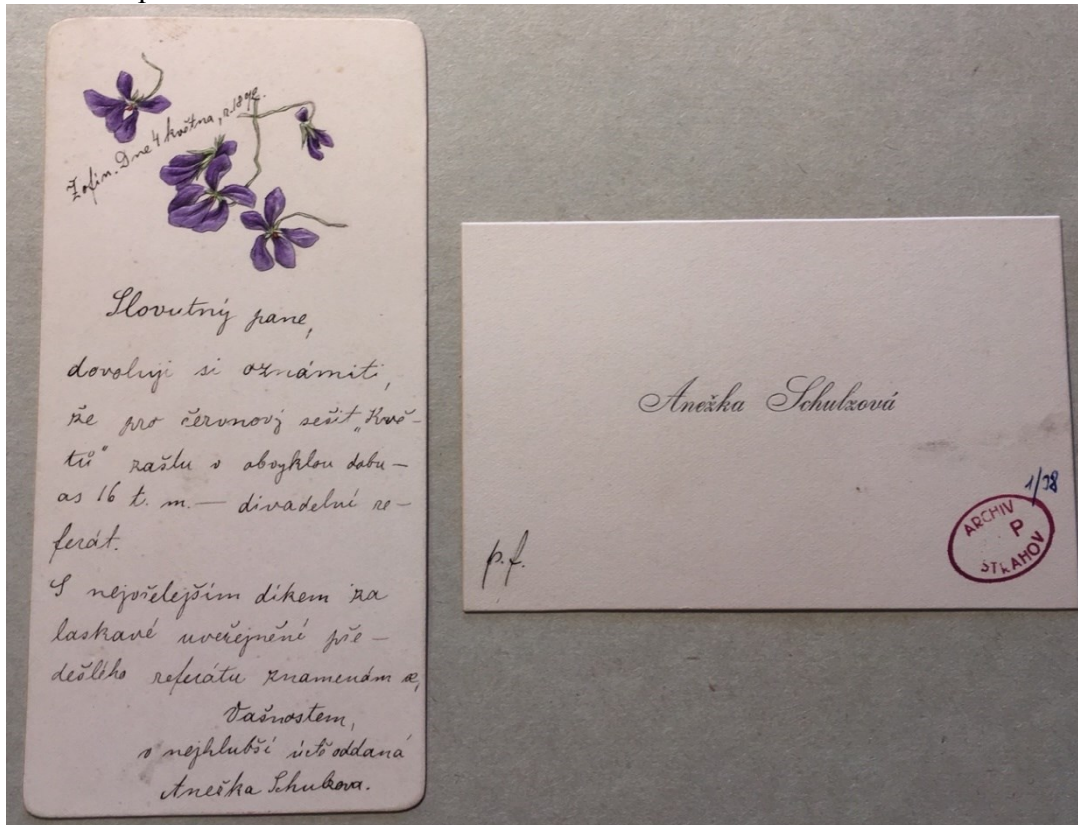 Žofín. Dne 4 května, r. 1892.
Slovutný pane,
dovoluji si oznámiti,
že pro červnový sešit „Kvě-
tů" zašlu v obvyklou dobu –
as 16 t. m. — divadelní re-
ferát.
S nejvřelejším díkem za
laskavé uveřejnění pře-
dešlého referátu znamenám se,
Vašnostem,
v nejhlubší úctě oddaná
Anežka Schulzova.
Anežka Schulzová
p. f.
1/38
ARCHIV
P
STRAHOV